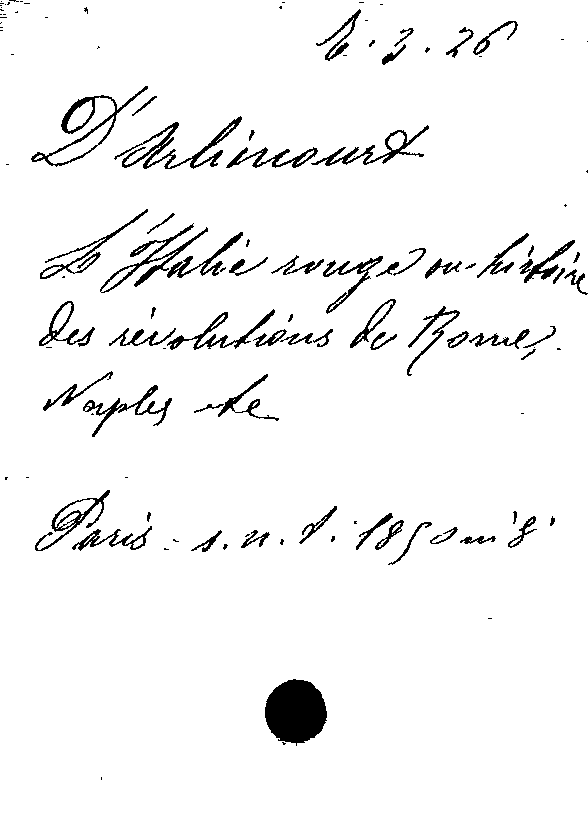 B. 3. 26
D'Arlincourt
L'Italie rouge ou histoire
des révolutions de Rome,
Naples etc
Paris - s. n. t. 1850 in 8°